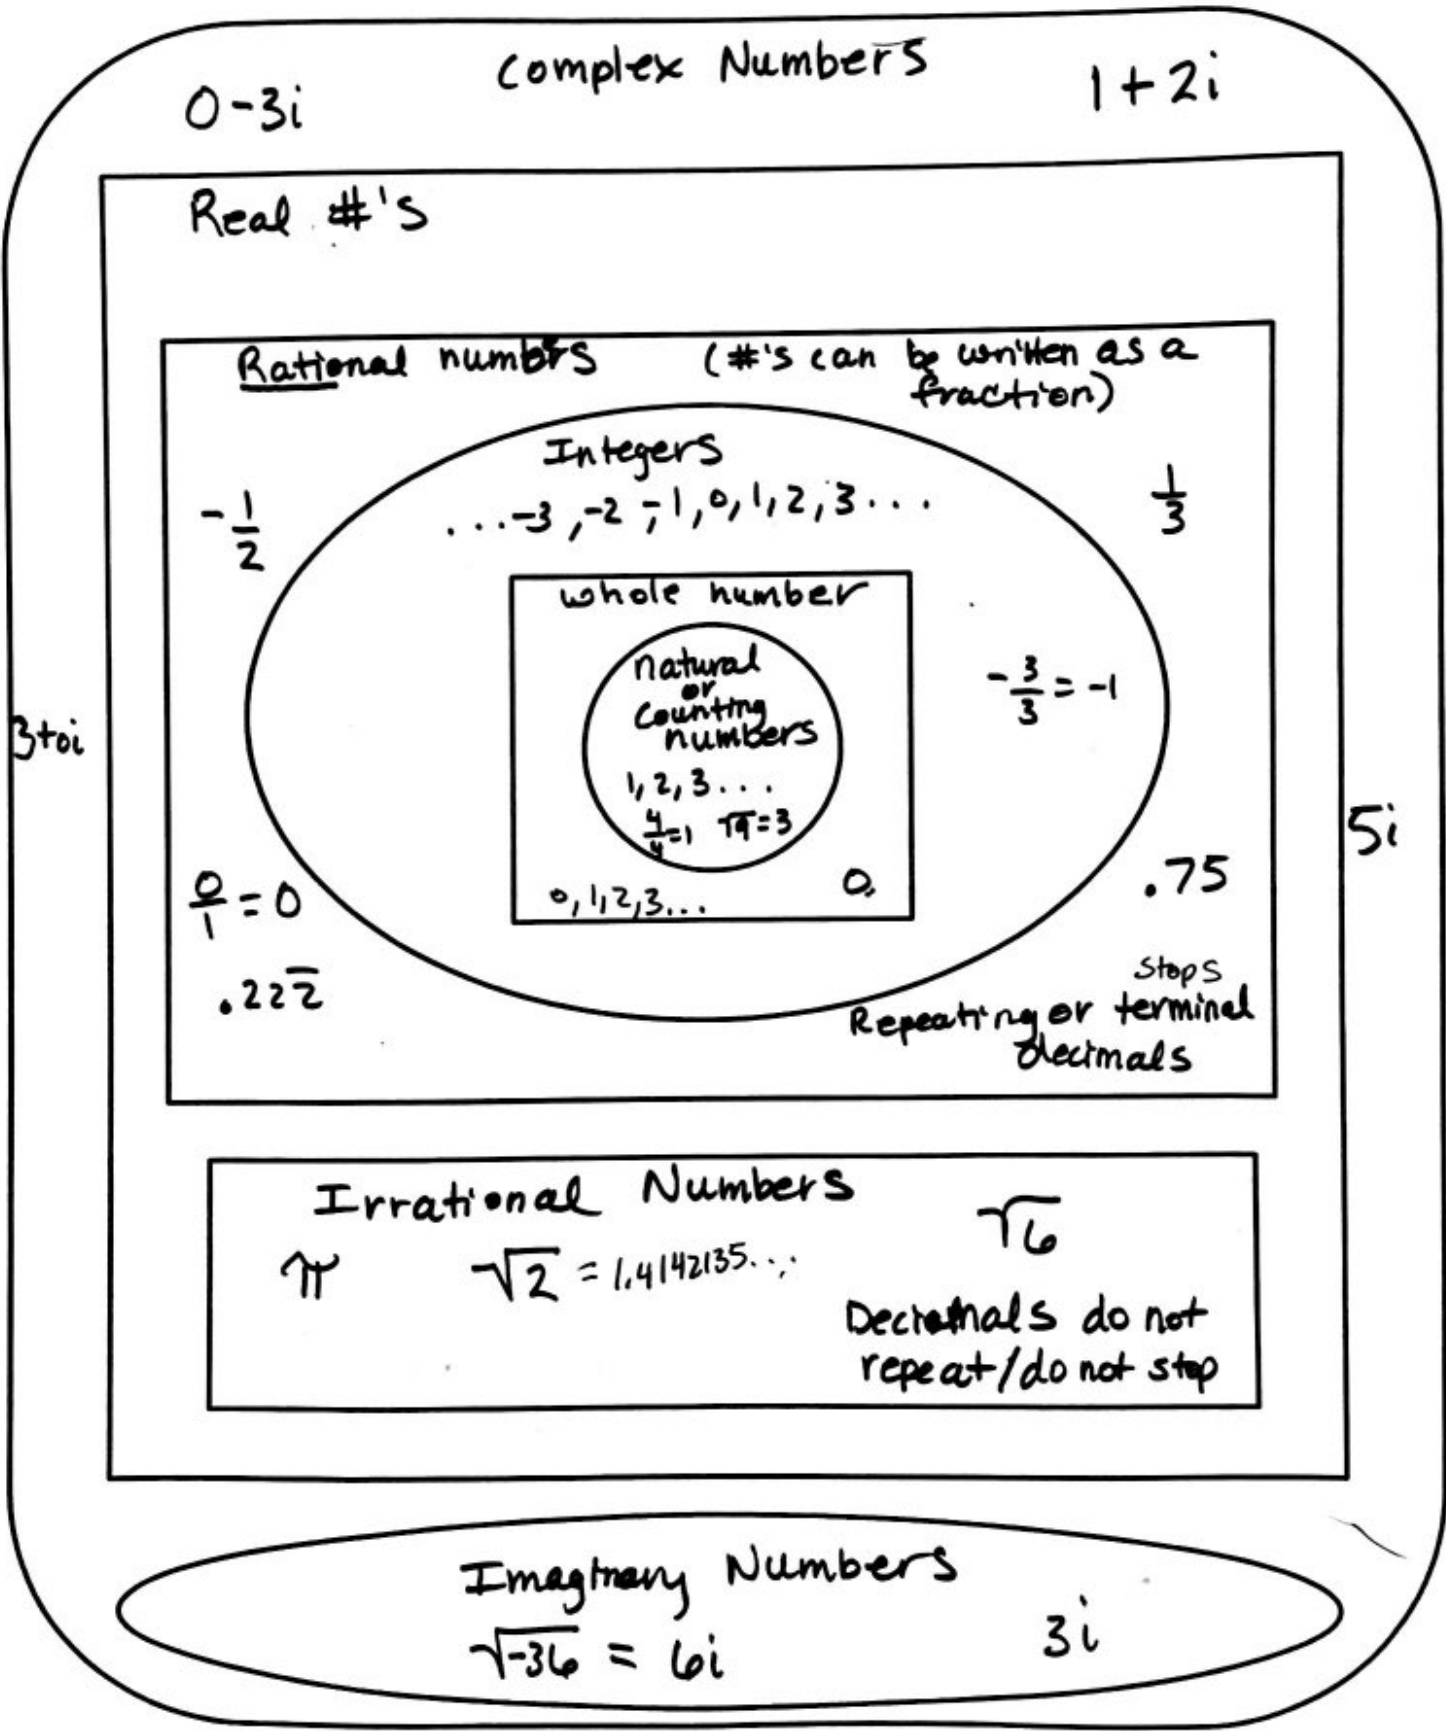 Complex Numbers
0-3i
1+2i
Real #'s
Rational numbrs (#'s can be written as a
fraction)
Integers
...-3,-2,-1,0,1,2,3...
-1/2
1/3
whole number
natural
or
Counting
numbers
1,2,3...
4/4=1 √9=3
-3/3=-1
3+0i
5i
0/1=0
0,1,2,3...
0
.75
.222̅
Stops
Repeating or terminal
decimals
Irrational Numbers
π
√2 = 1.4142135...
√6
Decimals do not
repeat/do not stop
Imaginary Numbers
√-36 = 6i
3i